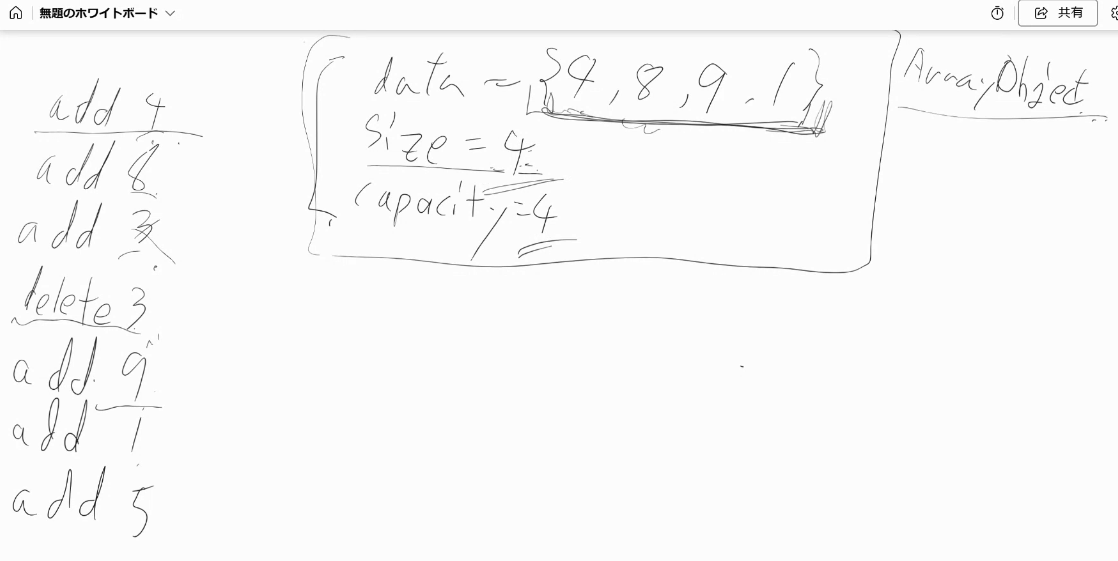 無題のホワイトボード
共有
add 4
add 8
add 3
delete 3
add 9
add 1
add 5
data = {4, 8, 9, 1}
size = 4
capacity = 4
ArrayObject